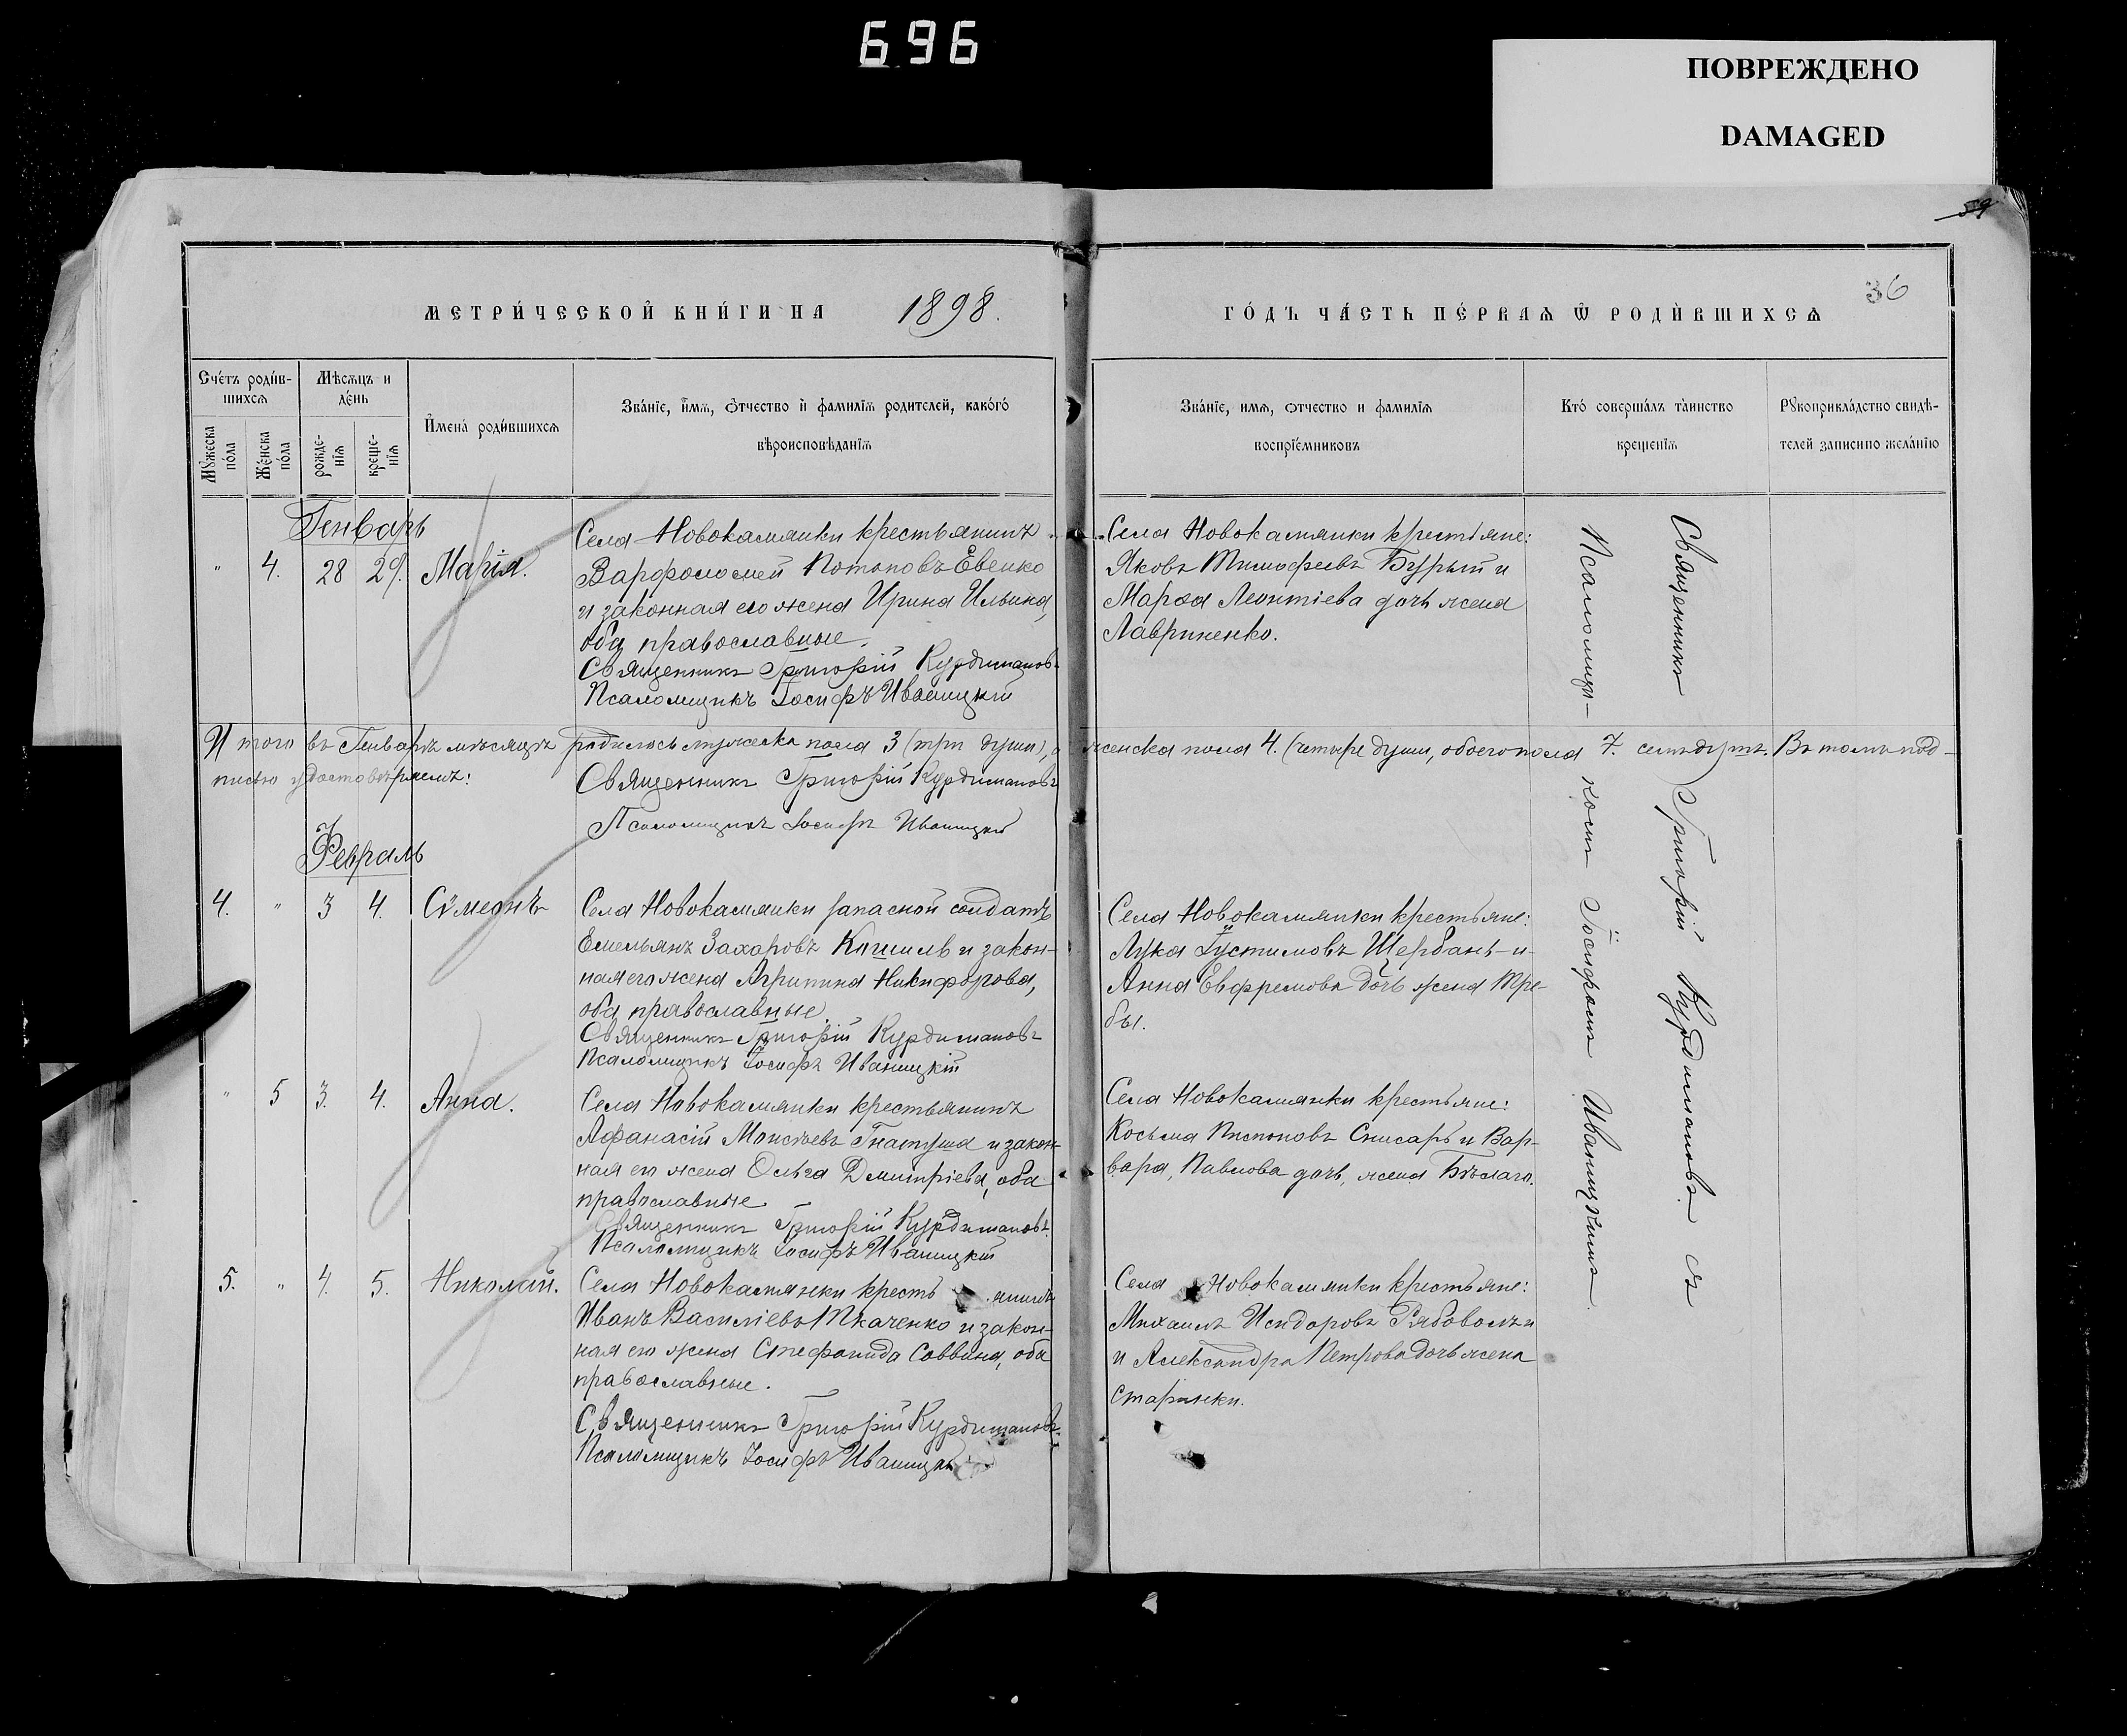 696
ПОВРЕЖДЕНО
DAMAGED
59
36
МЕТРИ́ЧЕСКОЙ КНИ́ГИ НА 1898.
ГО́ДЪ ЧА́СТЬ ПЕ́РВАѦ Ѿ РОДИ́ВШИХСѦ
Сче́тъ роди́в-
шихсѧ
Мѣсѧцъ и
де́нь
Мꙋ́жеска
по́ла
Же́нска
по́ла
рожде-
нїѧ
креще-
нїѧ
И҆мена̀ роди́вшихсѧ
Зва́нїе, и҆мѧ, ѻ҆тчество и҆ фамилїѧ родителей, како́гѡ
вѣроисповѣданїѧ
Зва́нїе, имѧ, ѻтчество и фамилїѧ
воспрїе́мниковъ
Кто̀ совершалъ та́инство
крещенїѧ
Рꙋкоприкла́дство свидѣ-
телей записи по жела́нїю
Генварь
" 4. 28 29. Марія.
Села Новокамянки крестьянинъ
Варфоломей Потаповъ Евенко
и законная его жена Ирина Ильина,
оба православные.
Священникъ Григорій Курдимановъ
Псаломщикъ Іосифъ Иваницкій
Села Новокамянки крестьяне:
Яковъ Тимофеевъ Бурый и
Марѳа Леонтіева дочь жена
Лавриненко.
Итого въ Генварѣ мѣсяцѣ родилось мужеска пола 3 (три души), а женска пола 4. (четыре души, обоего пола 7. семь душъ. Въ томъ под-
писью удостовѣряемъ:
Священникъ Григорій Курдимановъ
Псаломщикъ Іосифъ Иваницкій
Февраль
4. " 3 4. Сѵмеонъ
Села Новокамянки запасной солдатъ
Емельянъ Захаровъ Кошиль и закон-
ная его жена Агрипина Никифорова,
оба православные.
Священникъ Григорій Курдимановъ
Псаломщикъ Іосифъ Иваницкій
Села Новокамянки крестьяне:
Лука Іустимовъ Щербань и
Анна Евфремова дочь жена Тре-
бы.
" 5 3. 4. Анна.
Села Новокамянки крестьянинъ
Афанасій Моисѣевъ Гнатуша и закон-
ная его жена Ольга Дмитріева, оба
православные
Священникъ Григорій Курдимановъ.
Псаломщикъ Іосифъ Иваницкій
Села Новокамянки крестьяне:
Косьма Снисарь и Вар-
вара, Павлова дочь, жена Бѣлаго.
5. " 4. 5. Николай.
Села Новокамянки кресть янинъ
Иванъ Василіевъ Ткаченко и закон-
ная его жена Стефанида Саввина, оба
православные.
Священникъ Григорій Курдимановъ.
Псаломщикъ Іосифъ Иваницкій
Села Новокамянки крестьяне:
Михаилъ Исидоровъ Рябоволъ и
и Александра Петрова дочь жена
Старинки.
Священникъ Григорій Курдимановъ съ
Псаломщи-комъ Іосифомъ Иваницкимъ.